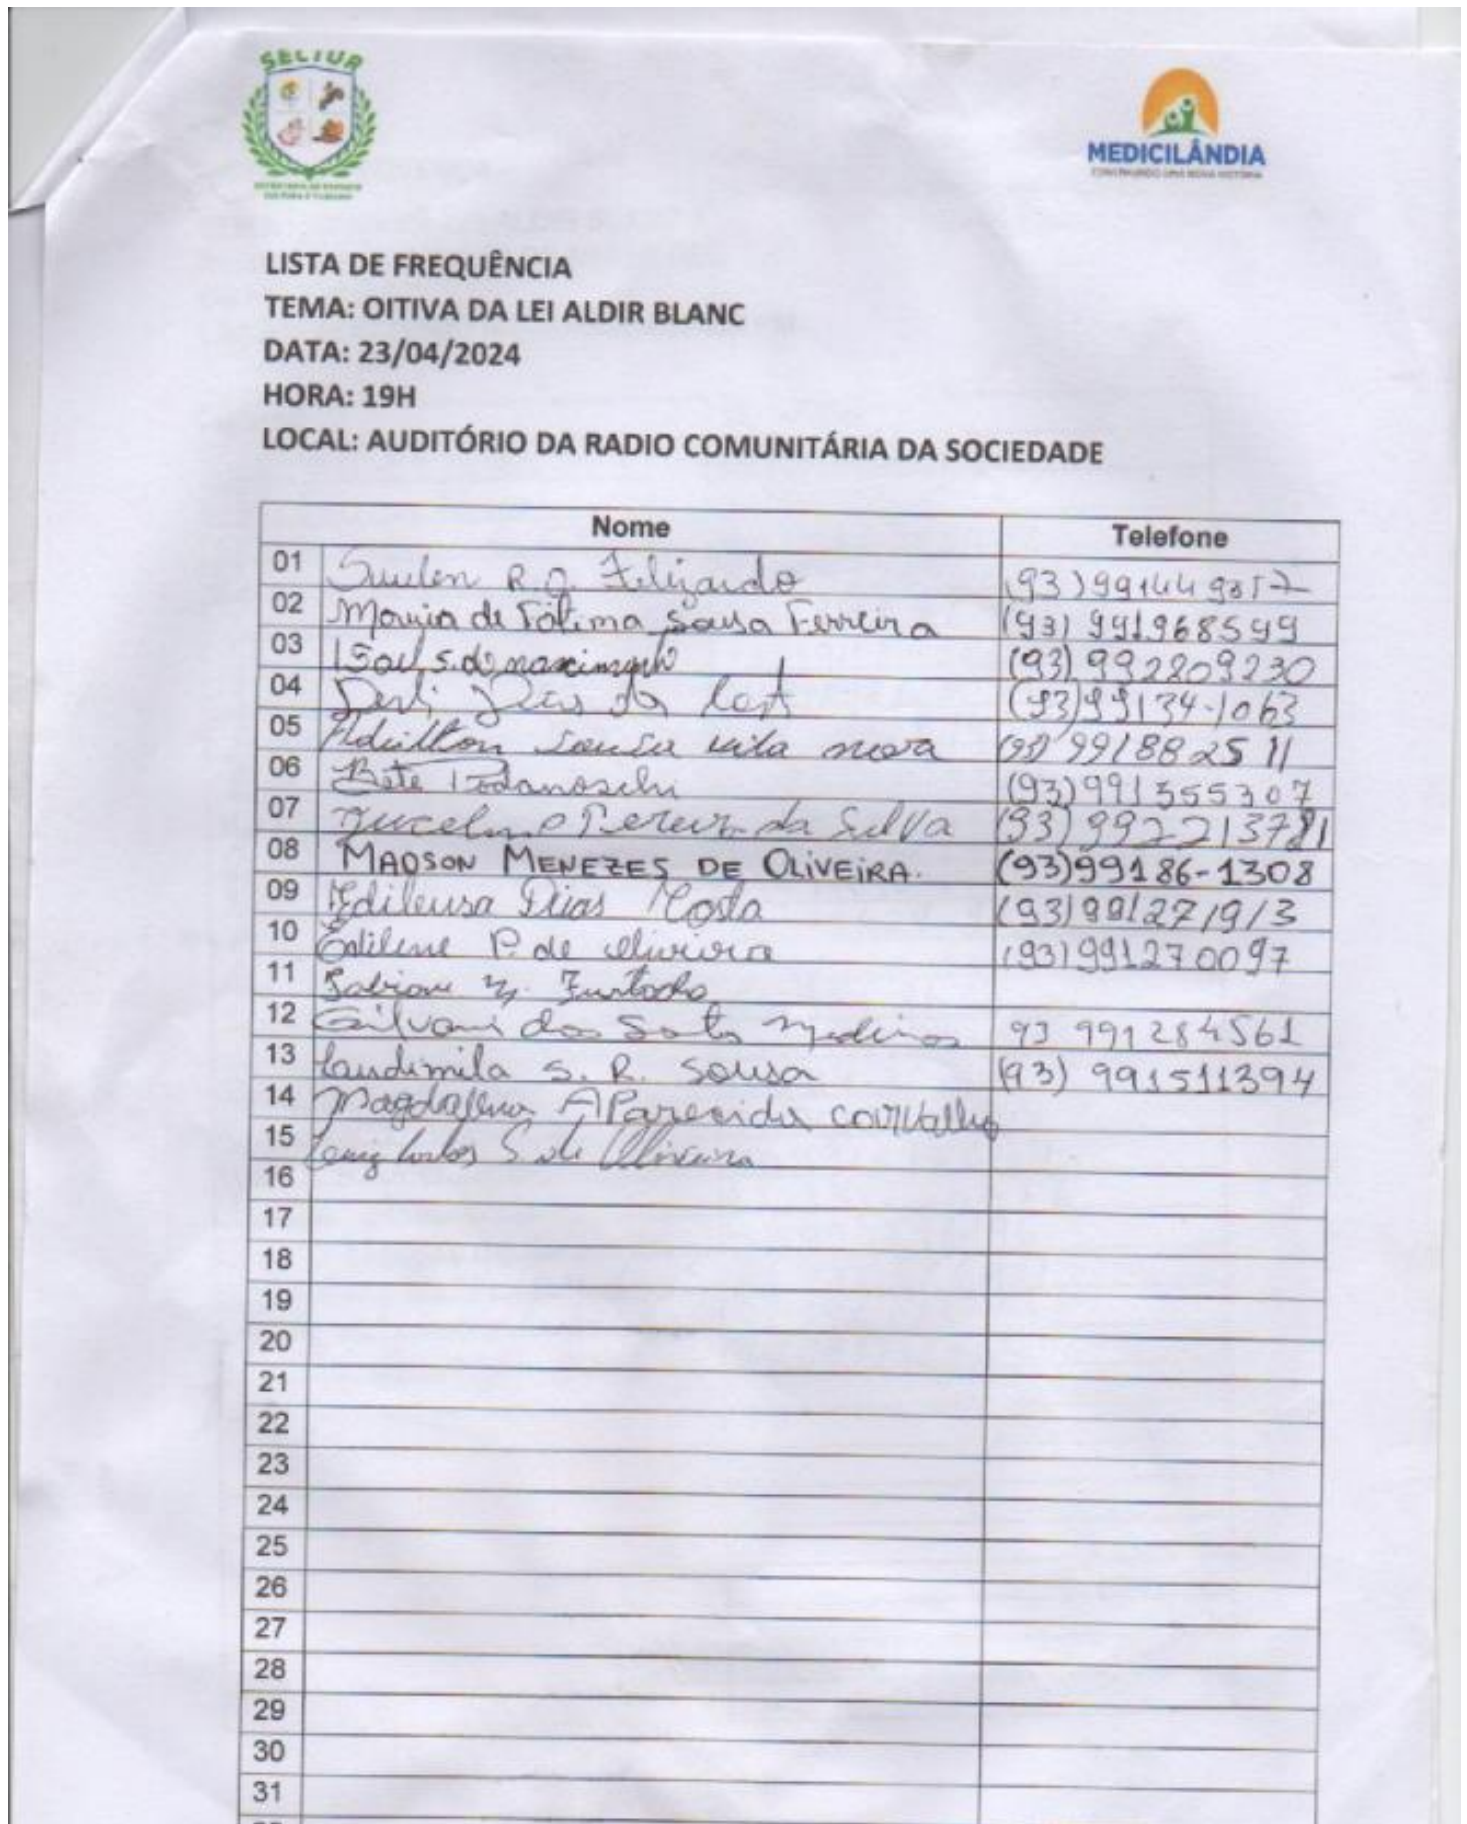 SECTUR
MEDICILÂNDIA
CONSTRUINDO UMA NOVA HISTÓRIA
SECRETARIA DE ESPORTE
CULTURA E TURISMO
LISTA DE FREQUÊNCIA
TEMA: OITIVA DA LEI ALDIR BLANC
DATA: 23/04/2024
HORA: 19H
LOCAL: AUDITÓRIO DA RADIO COMUNITÁRIA DA SOCIEDADE
Nome Telefone
01 Suelen R. O. Felizardo (93)
02 Maria de Fátima Sousa Ferreira (93) 991968599
03 S. do nascimento (93) 992809230
04 Dias da Cost (93)99134-1063
05 Adeilton Sousa vila nova (93) 991882511
06 Bete Bodanoschi (93)991355307
07 Jucelino Pereira da Silva (93)
08 MADSON MENEZES DE OLIVEIRA. (93)99186-1308
09 Edileusa Dias Costa (93)991271913
10 Edilene P. de oliveira (93)991270097
11 Furtado
12 Gilvani dos Santos Medeiros 93 991284561
13 Laudimila S. R. Sousa (93) 991511394
14 Magdalena APARECIDA carvalho
15 Luiz Carlos S de Oliveira
16
17
18
19
20
21
22
23
24
25
26
27
28
29
30
31